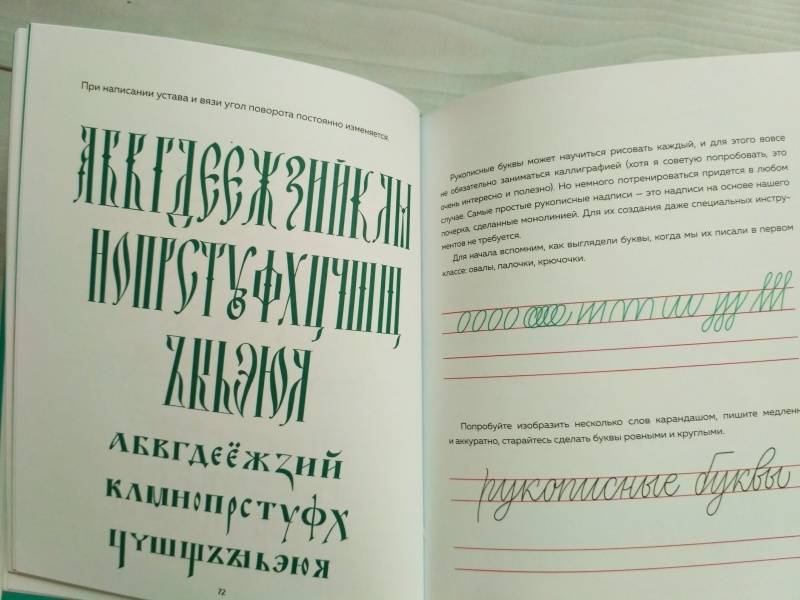 При написании устава и вязи угол поворота постоянно изменяется.
АБВГДЕЁЖЗИЙКЛМ
НОПРСТУФХЦЧШЩ
ЪЫЬЭЮЯ
АБВГДЕЁЖЗИЙ
КЛМНОПРСТУФХ
ЦЧШЩЪЫЬЭЮЯ
72
Рукописные буквы может научиться рисовать каждый, и для этого вовсе
не обязательно заниматься каллиграфией (хотя я советую попробовать, это
очень интересно и полезно). Но немного потренироваться придется в любом
случае. Самые простые рукописные надписи — это надписи на основе нашего
почерка, сделанные монолинией. Для их создания даже специальных инстру-
ментов не требуется.
Для начала вспомним, как выглядели буквы, когда мы их писали в первом
классе: овалы, палочки, крючочки.
Попробуйте изобразить несколько слов карандашом, пишите медленн
и аккуратно, старайтесь сделать буквы ровными и круглыми.
рукописные буквы